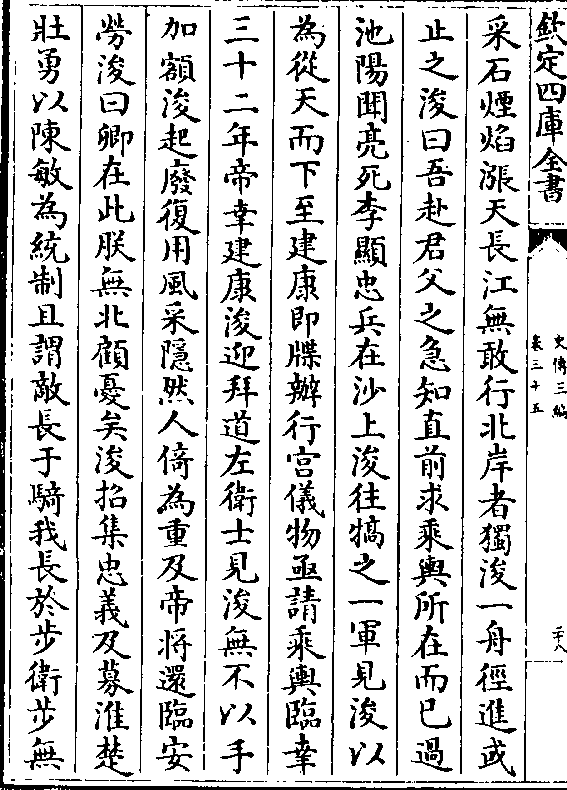 欽定四庫全書
史傳三編
卷三十五
二十八
采石煙焰漲天長江無敢行北岸者獨浚一舟徑進或
止之浚曰吾赴君父之急知直前求乘輿所在而已過
池陽聞亮死李顯忠兵在沙上浚往犒之一軍見浚以
為從天而下至建康即牒辦行宮儀物亟請乘輿臨幸
三十二年帝幸建康浚迎拜道左衛士見浚無不以手
加額浚起廢復用風采隱然人倚為重及帝將還臨安
勞浚曰卿在此朕無北顧憂矣浚招集忠義及募淮楚
壯勇以陳敏為統制且謂敵長于騎我長於步衛步無